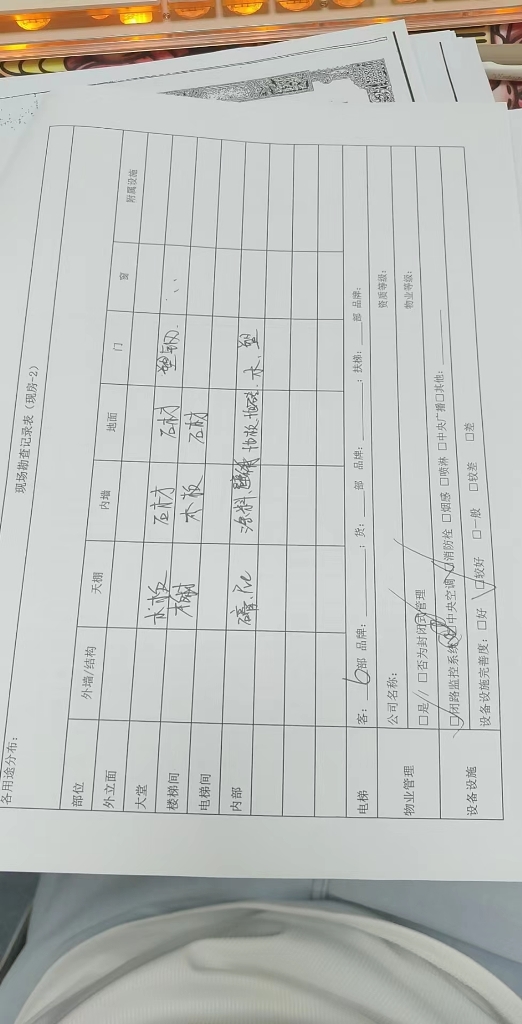 现场勘查记录表（现房-2）
各用途分布：
部位 外墙/结构 天棚 内墙 地面 门 窗 附属设施
外立面
大堂 木板 石材 石材 塑钢
楼梯间 木板 石材
电梯间
内部 涂料 地板 木、塑
电梯 客：6部 品牌： ；货： 部 品牌： ；扶梯： 部 品牌：
物业管理 公司名称： 资质等级：
□是 □否为封闭式管理 物业等级：
设备设施 □闭路监控系统 □中央空调 □消防栓 □烟感 □喷淋 □中央广播 □其他：
设备设施完善度：□好 □较好 □一般 □较差 □差